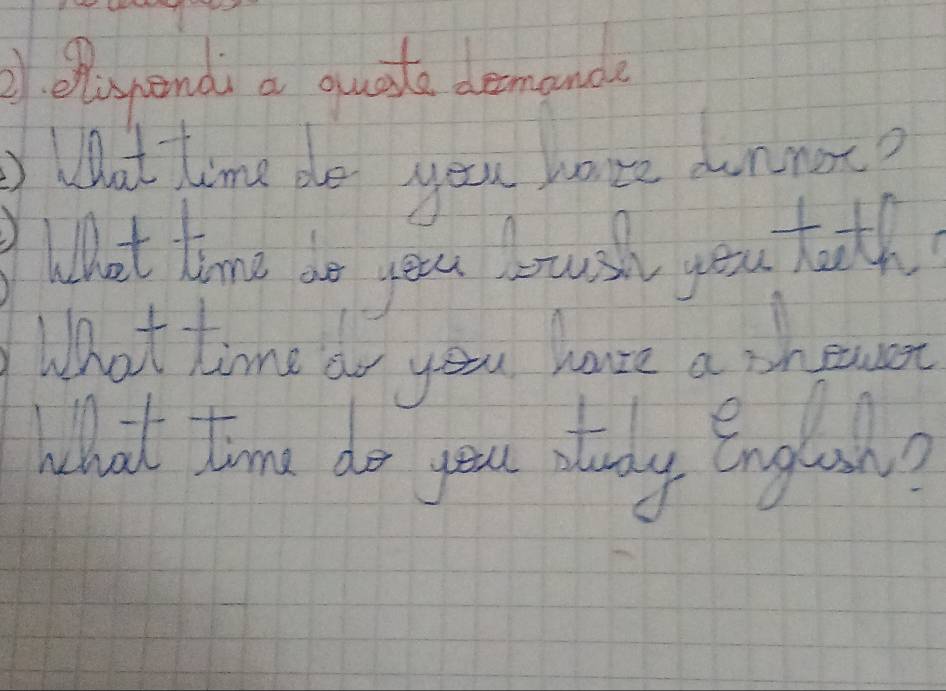 2) Rispondi a queste domande
) What time do you have dinner?
) What time do you brush you teeth ?
) What time do you have a shower
What time do you study English?